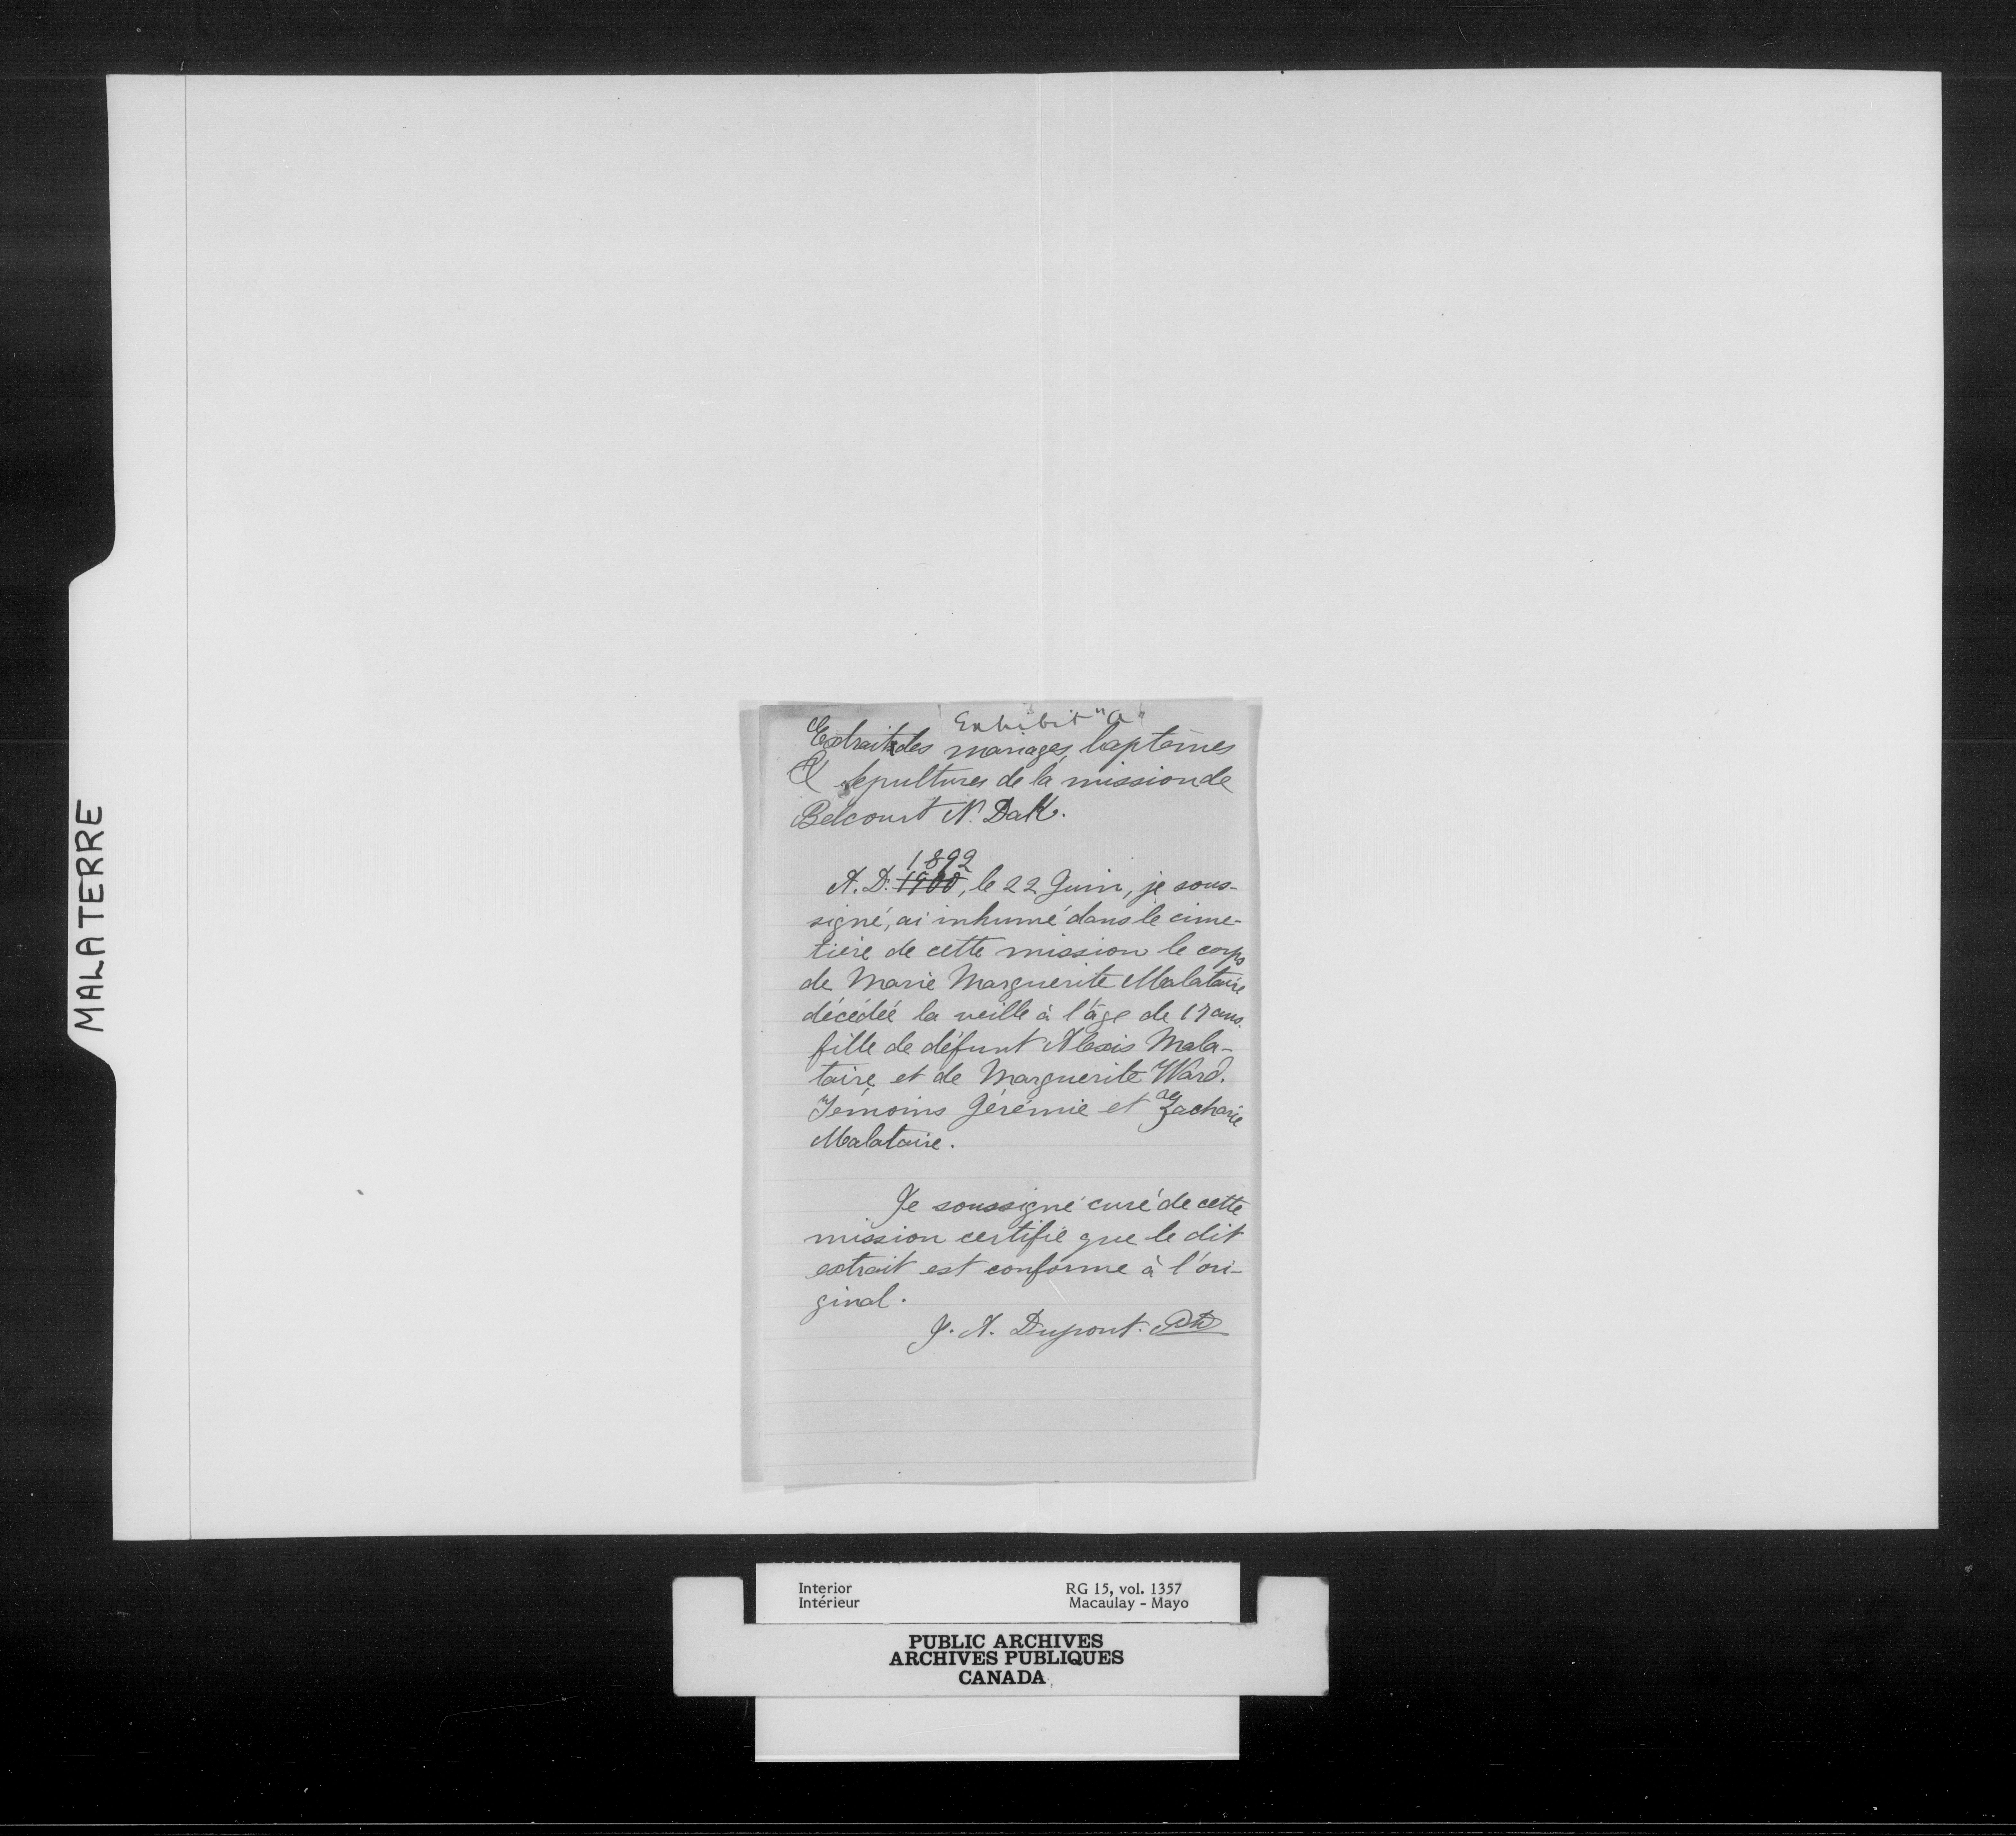 MALATERRE
Exhibit "a"
Extrait des mariages, baptêmes
& sepultures de la mission de
Belcourt N. Dak.
1892
A. D. 1900, le 22 Juin, je sous-
signé, ai inhumé dans le cime-
tière de cette mission le corps
de Marie Marguerite Malataire
décédée la veille à l'âge de 17 ans.
fille de défunt Alexis Mala-
taire et de Marguerite Ward.
Témoins Jérémie et Zacharie
Malataire.
Je soussigné curé de cette
mission certifie que le dit
extrait est conforme à l'ori-
ginal.
J. A. Dupont.
Interior
Intérieur
RG 15, vol. 1357
Macaulay - Mayo
PUBLIC ARCHIVES
ARCHIVES PUBLIQUES
CANADA